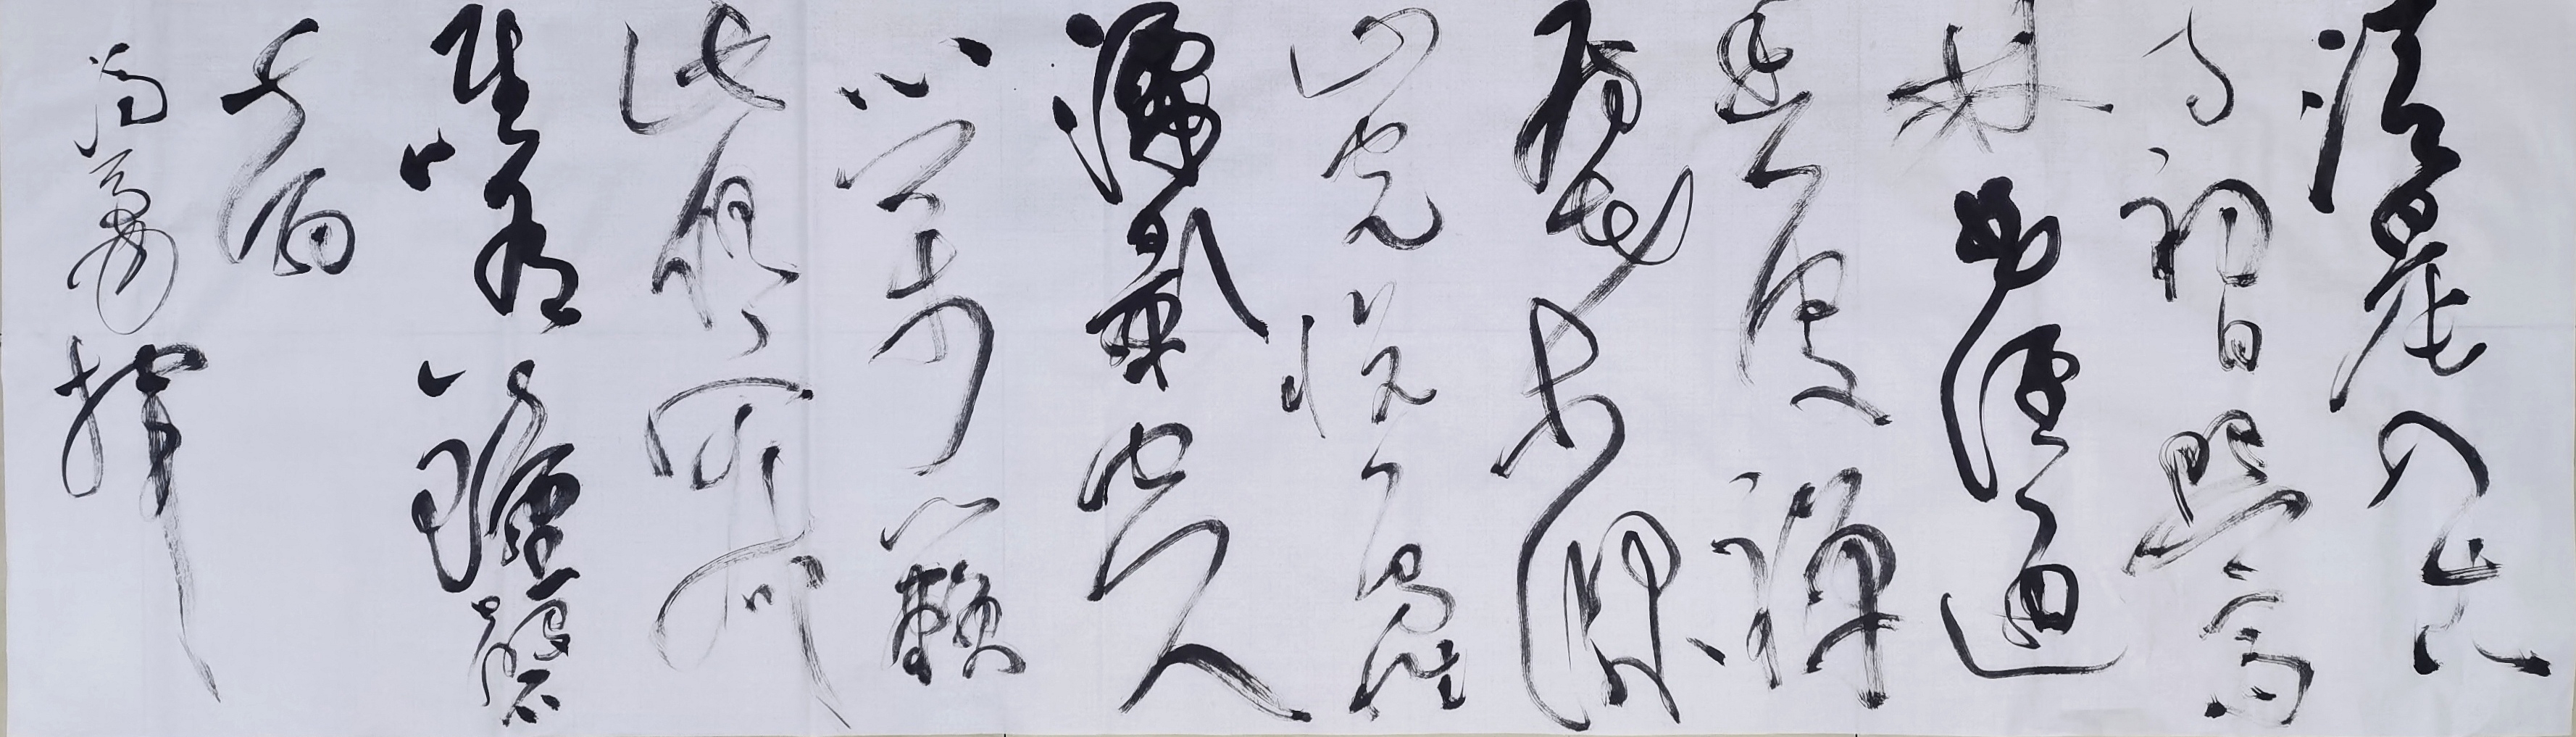 清晨入古
寺初日照高
林曲徑通
幽處禪
房花木深
山光悦鳥性
潭影空人
心萬籟
此俱寂
惟鐘磬
音